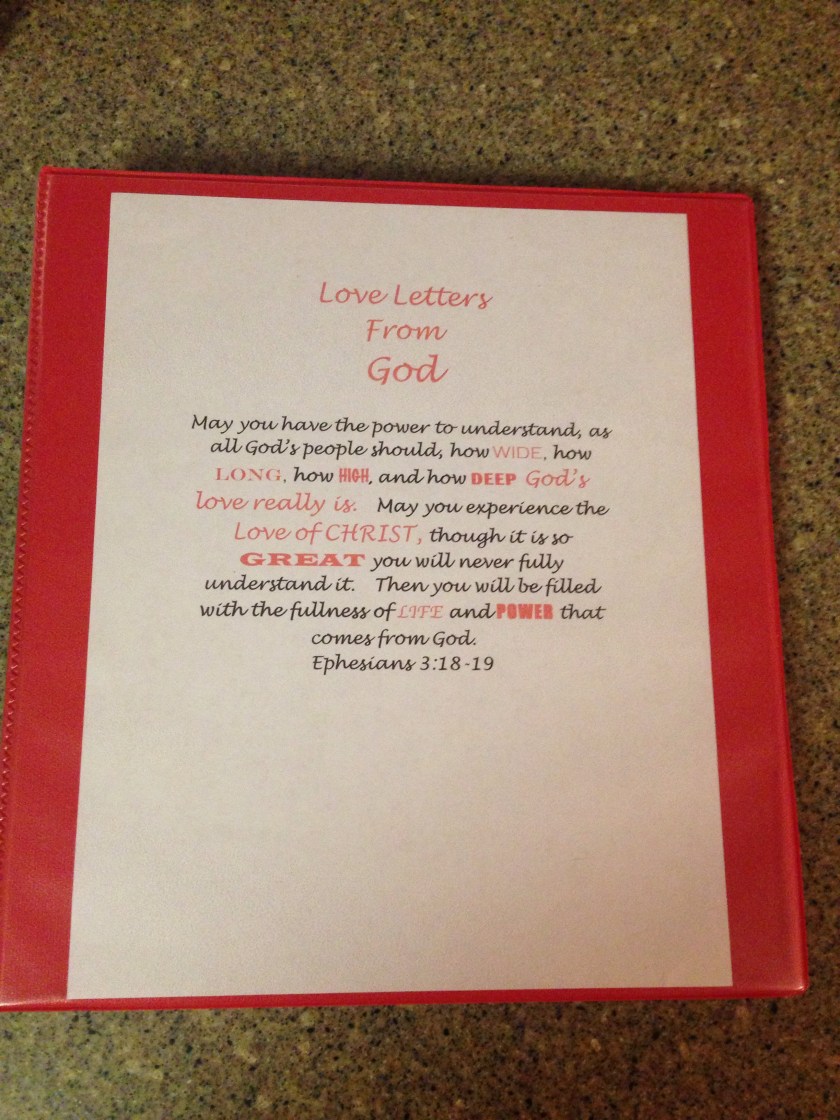 Love Letters
From
God
May you have the power to understand, as
all God's people should, how WIDE, how
LONG, how HIGH, and how DEEP God's
love really is. May you experience the
Love of CHRIST, though it is so
GREAT you will never fully
understand it. Then you will be filled
with the fullness of LIFE and POWER that
comes from God.
Ephesians 3:18-19